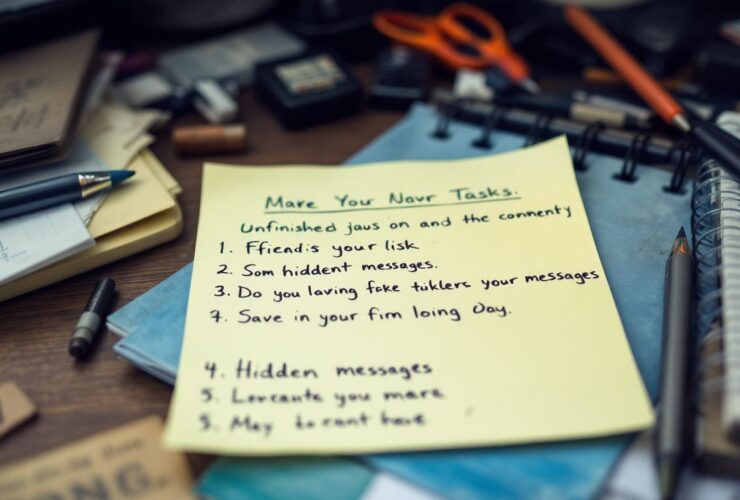 Mare Your Navr Tasks.
Unfinished jaus on and the connenty
1. Ffiendis your lisk
2. Som hiddent messages.
3. Do you laving fake tüklers your messages
7. Save in your firn loing Day.
4. Hidden messages
5. Lercante you mare
5. May to cant have
ONG.